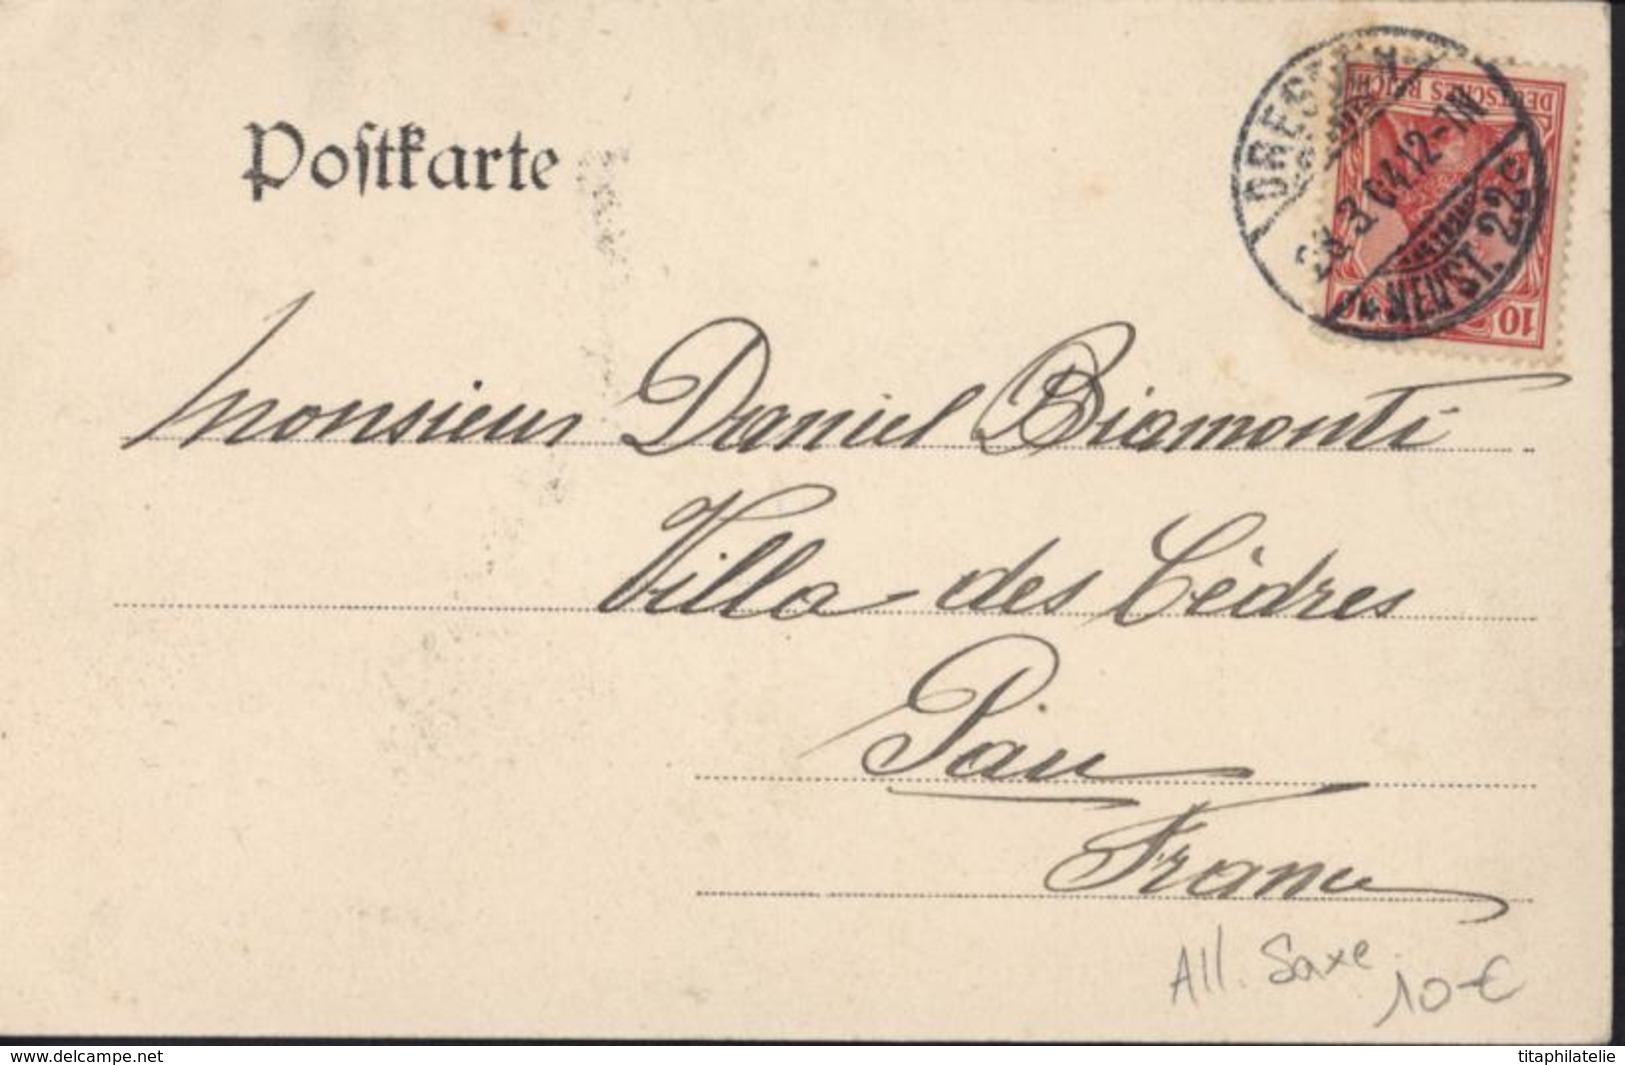 Postkarte
DRESDEN
3.04.12-1N
NEUST. 22c
DEUTSCHES REICH
10
Monsieur Daniel Biamonti
Villa-des Cèdres
Pau
France
All. Saxe
10 €
www.delcampe.net
titaphilatelie